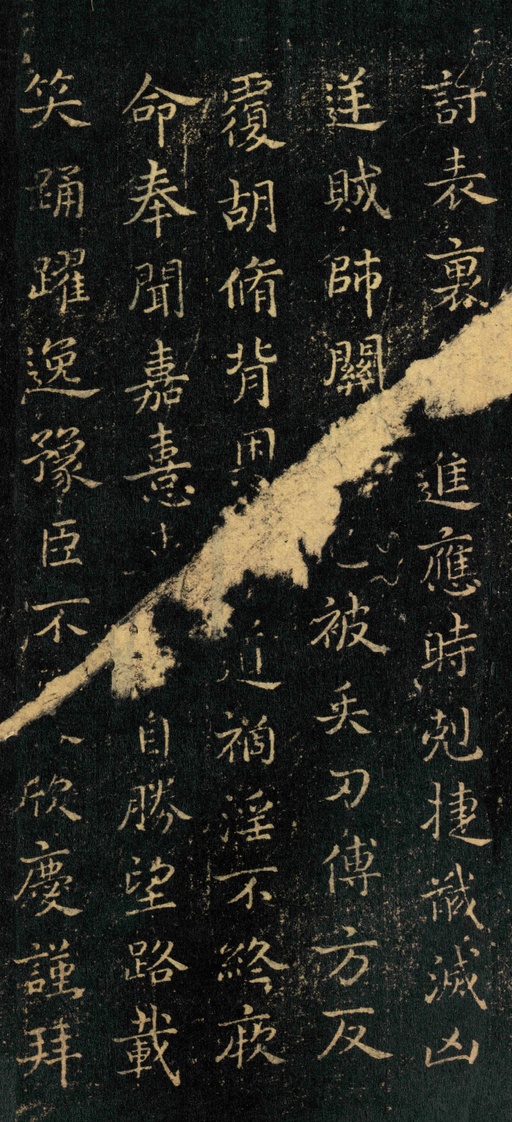 討表裏進應時剋捷馘滅凶
逆賊帥關已被矢刃傅方反
覆胡脩背恩道禍淫不終厥
命奉聞嘉憙自勝望路載
笑踊躍逸豫臣不欣慶謹拜